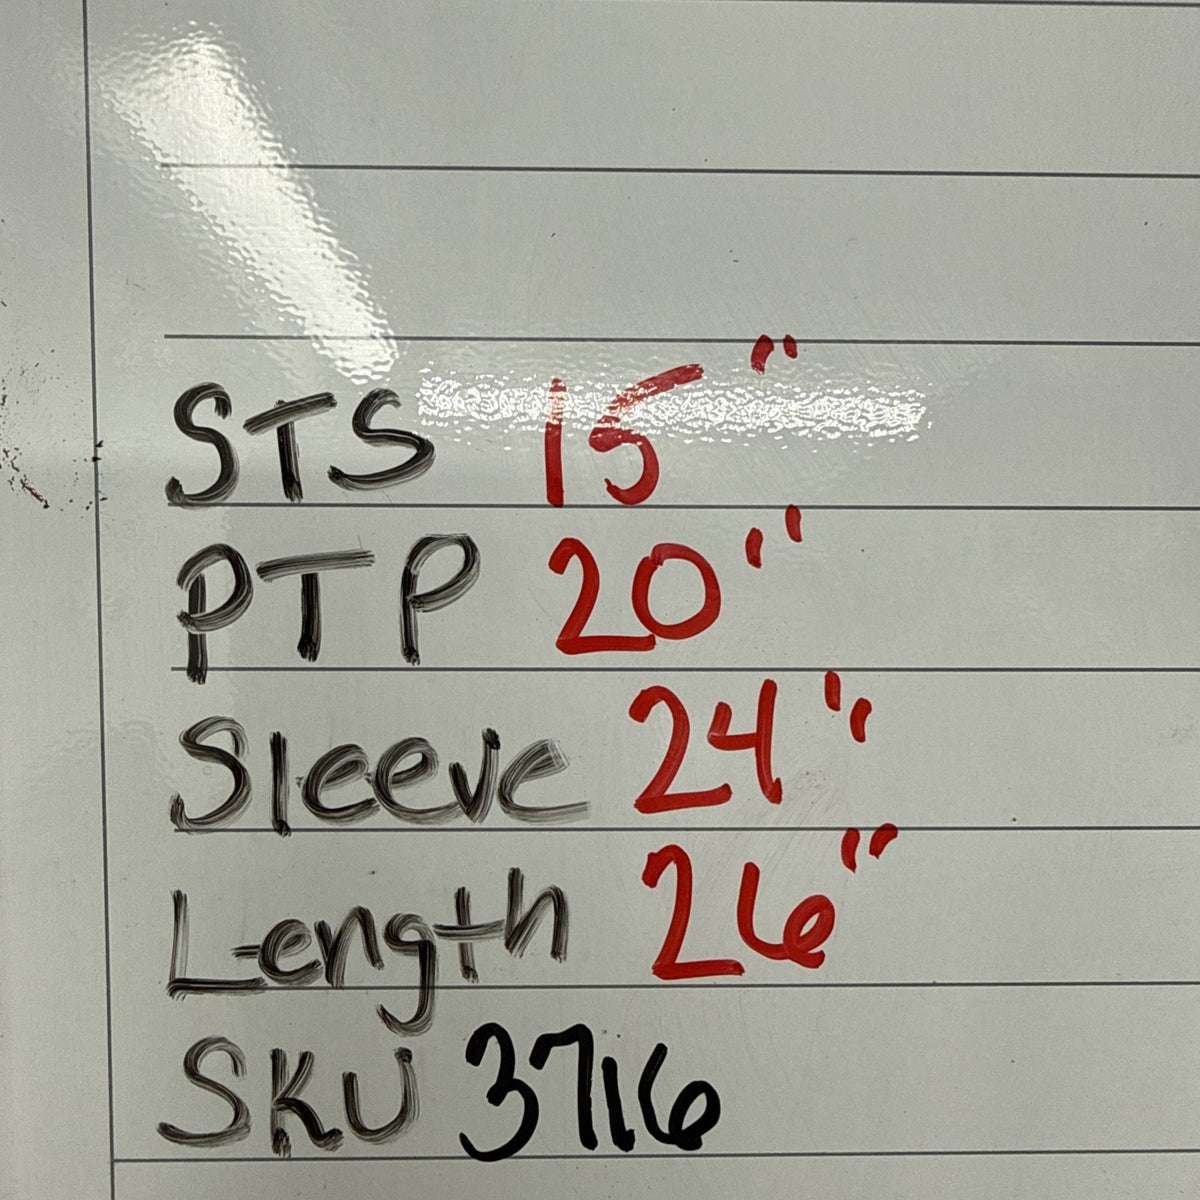 STS 15"
PTP 20"
Sleeve 24"
Length 26"
SKU 3716